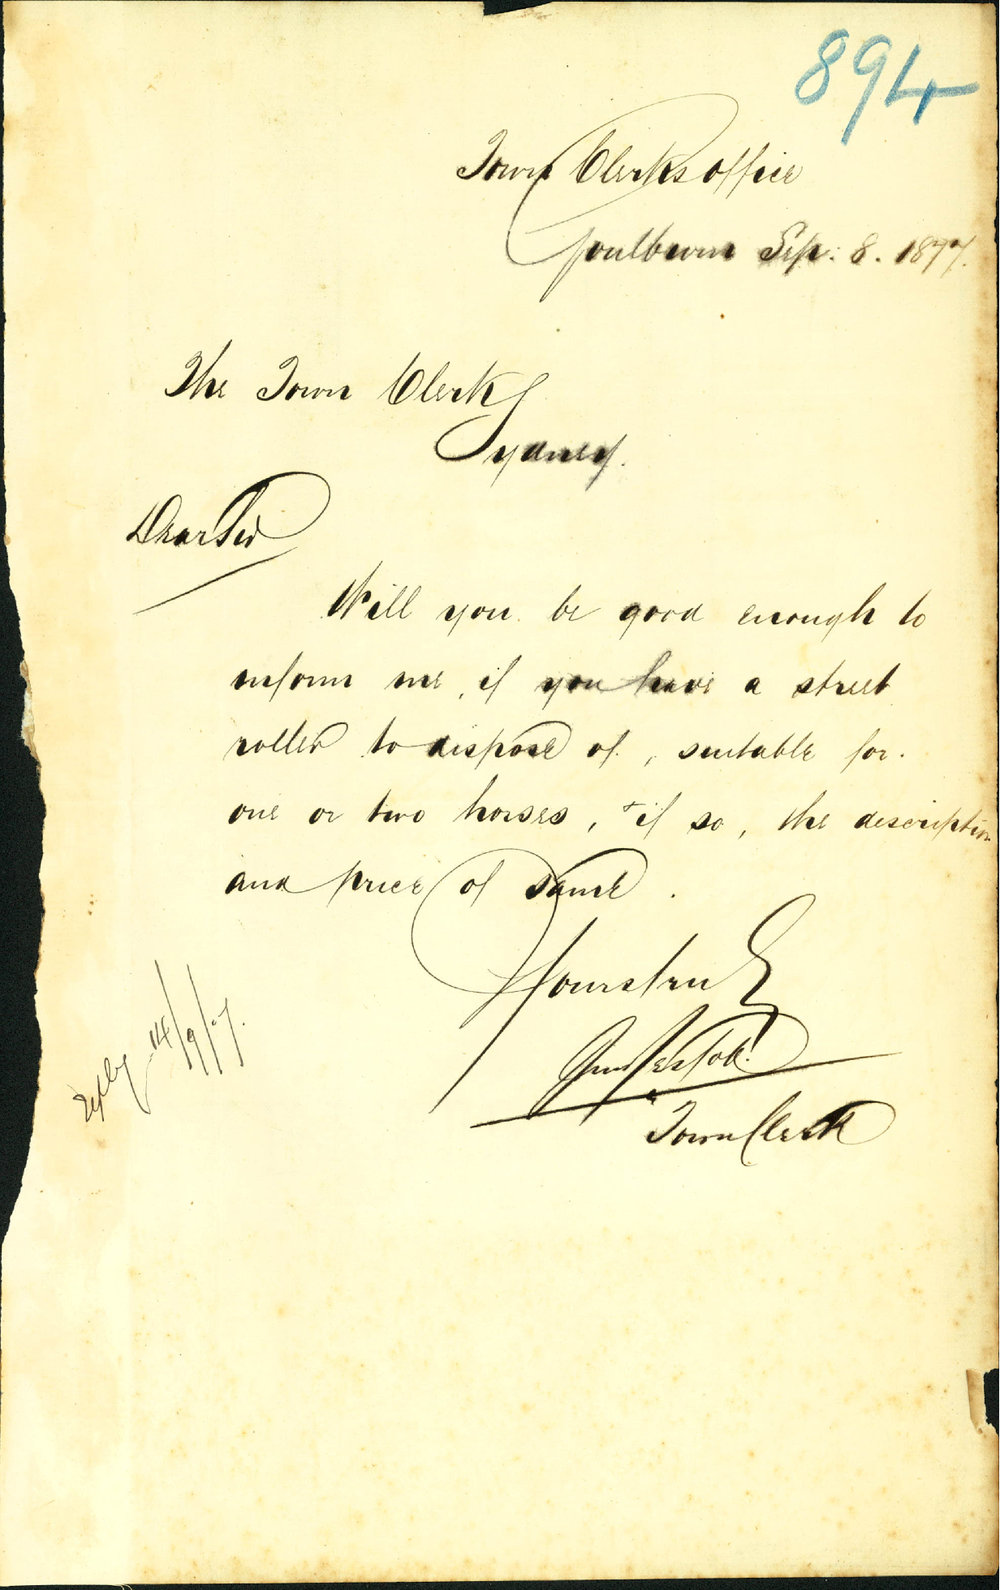 894
Town Clerks office
Goulburn Sep: 8. 1877.
The Town Clerk
Sydney.
Dear Sir
Will you be good enough to
inform me, if you have a street
roller to dispose of, suitable for
one or two horses, & if so, the description
and price of same.
Yours truly
Town Clerk
Reply 14/9/77.